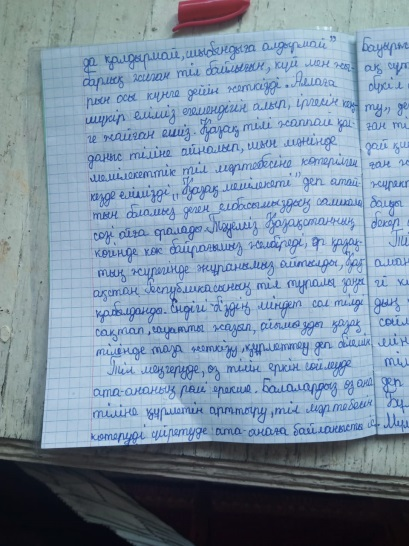 да қалдырмай, шыбындыға алдырмай"
барлық жиған тіл байлығын, күй мен жы-
рын осы күнге дейін жеткізді. Аллаға
шүкір еліміз егемендігін алып, іргесін кең-
ге жайған емиз. Қазақ тілі жаппай қол-
даныс тіліне айналып, шын мәнінде
мемлекеттік тіл мәртебесіне көтерілген
кезде елімізді "Қазақ мемлекеті" деп атай-
тын боламыз деген елбасымыздың
сөзі ойға оралады. Тәуелсіз Қазақстанның
көгінде көк байрағымыз желбіреді, әр қазақ-
тың жүрегінде әнұранымыз айтылды, Қаз-
ақстан Республикасының тіл туралы заңы
қабылданды. Ендігі біздің міндет сол тілді
сақтап, сауатты жазып, ойымызды қазақ
тілінде таза жеткізу, құрметтеу деп
Тіл меңгеруде, өз тілін еркін сөйлеуде
ата-ананың рөлі ерекше. Балалардың өз ана
тіліне құрметін арттыру, тіл мәртебесін
көтеруді үйретуде ата-анаға байланысты
Бауырж
ақ сүт
ту,, де
ған тіл
дай
ған ж
жүрект
болды
бекер
аман
ті
дың
сөйл
мін
тіл
деп
Бұл